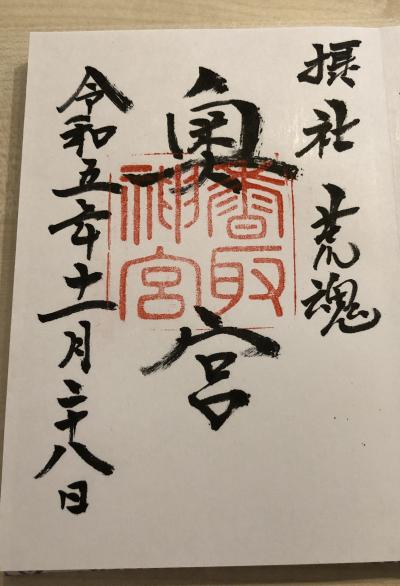 摂社 荒魂
奥宮
香取
神宮
令和五年十一月二十八日